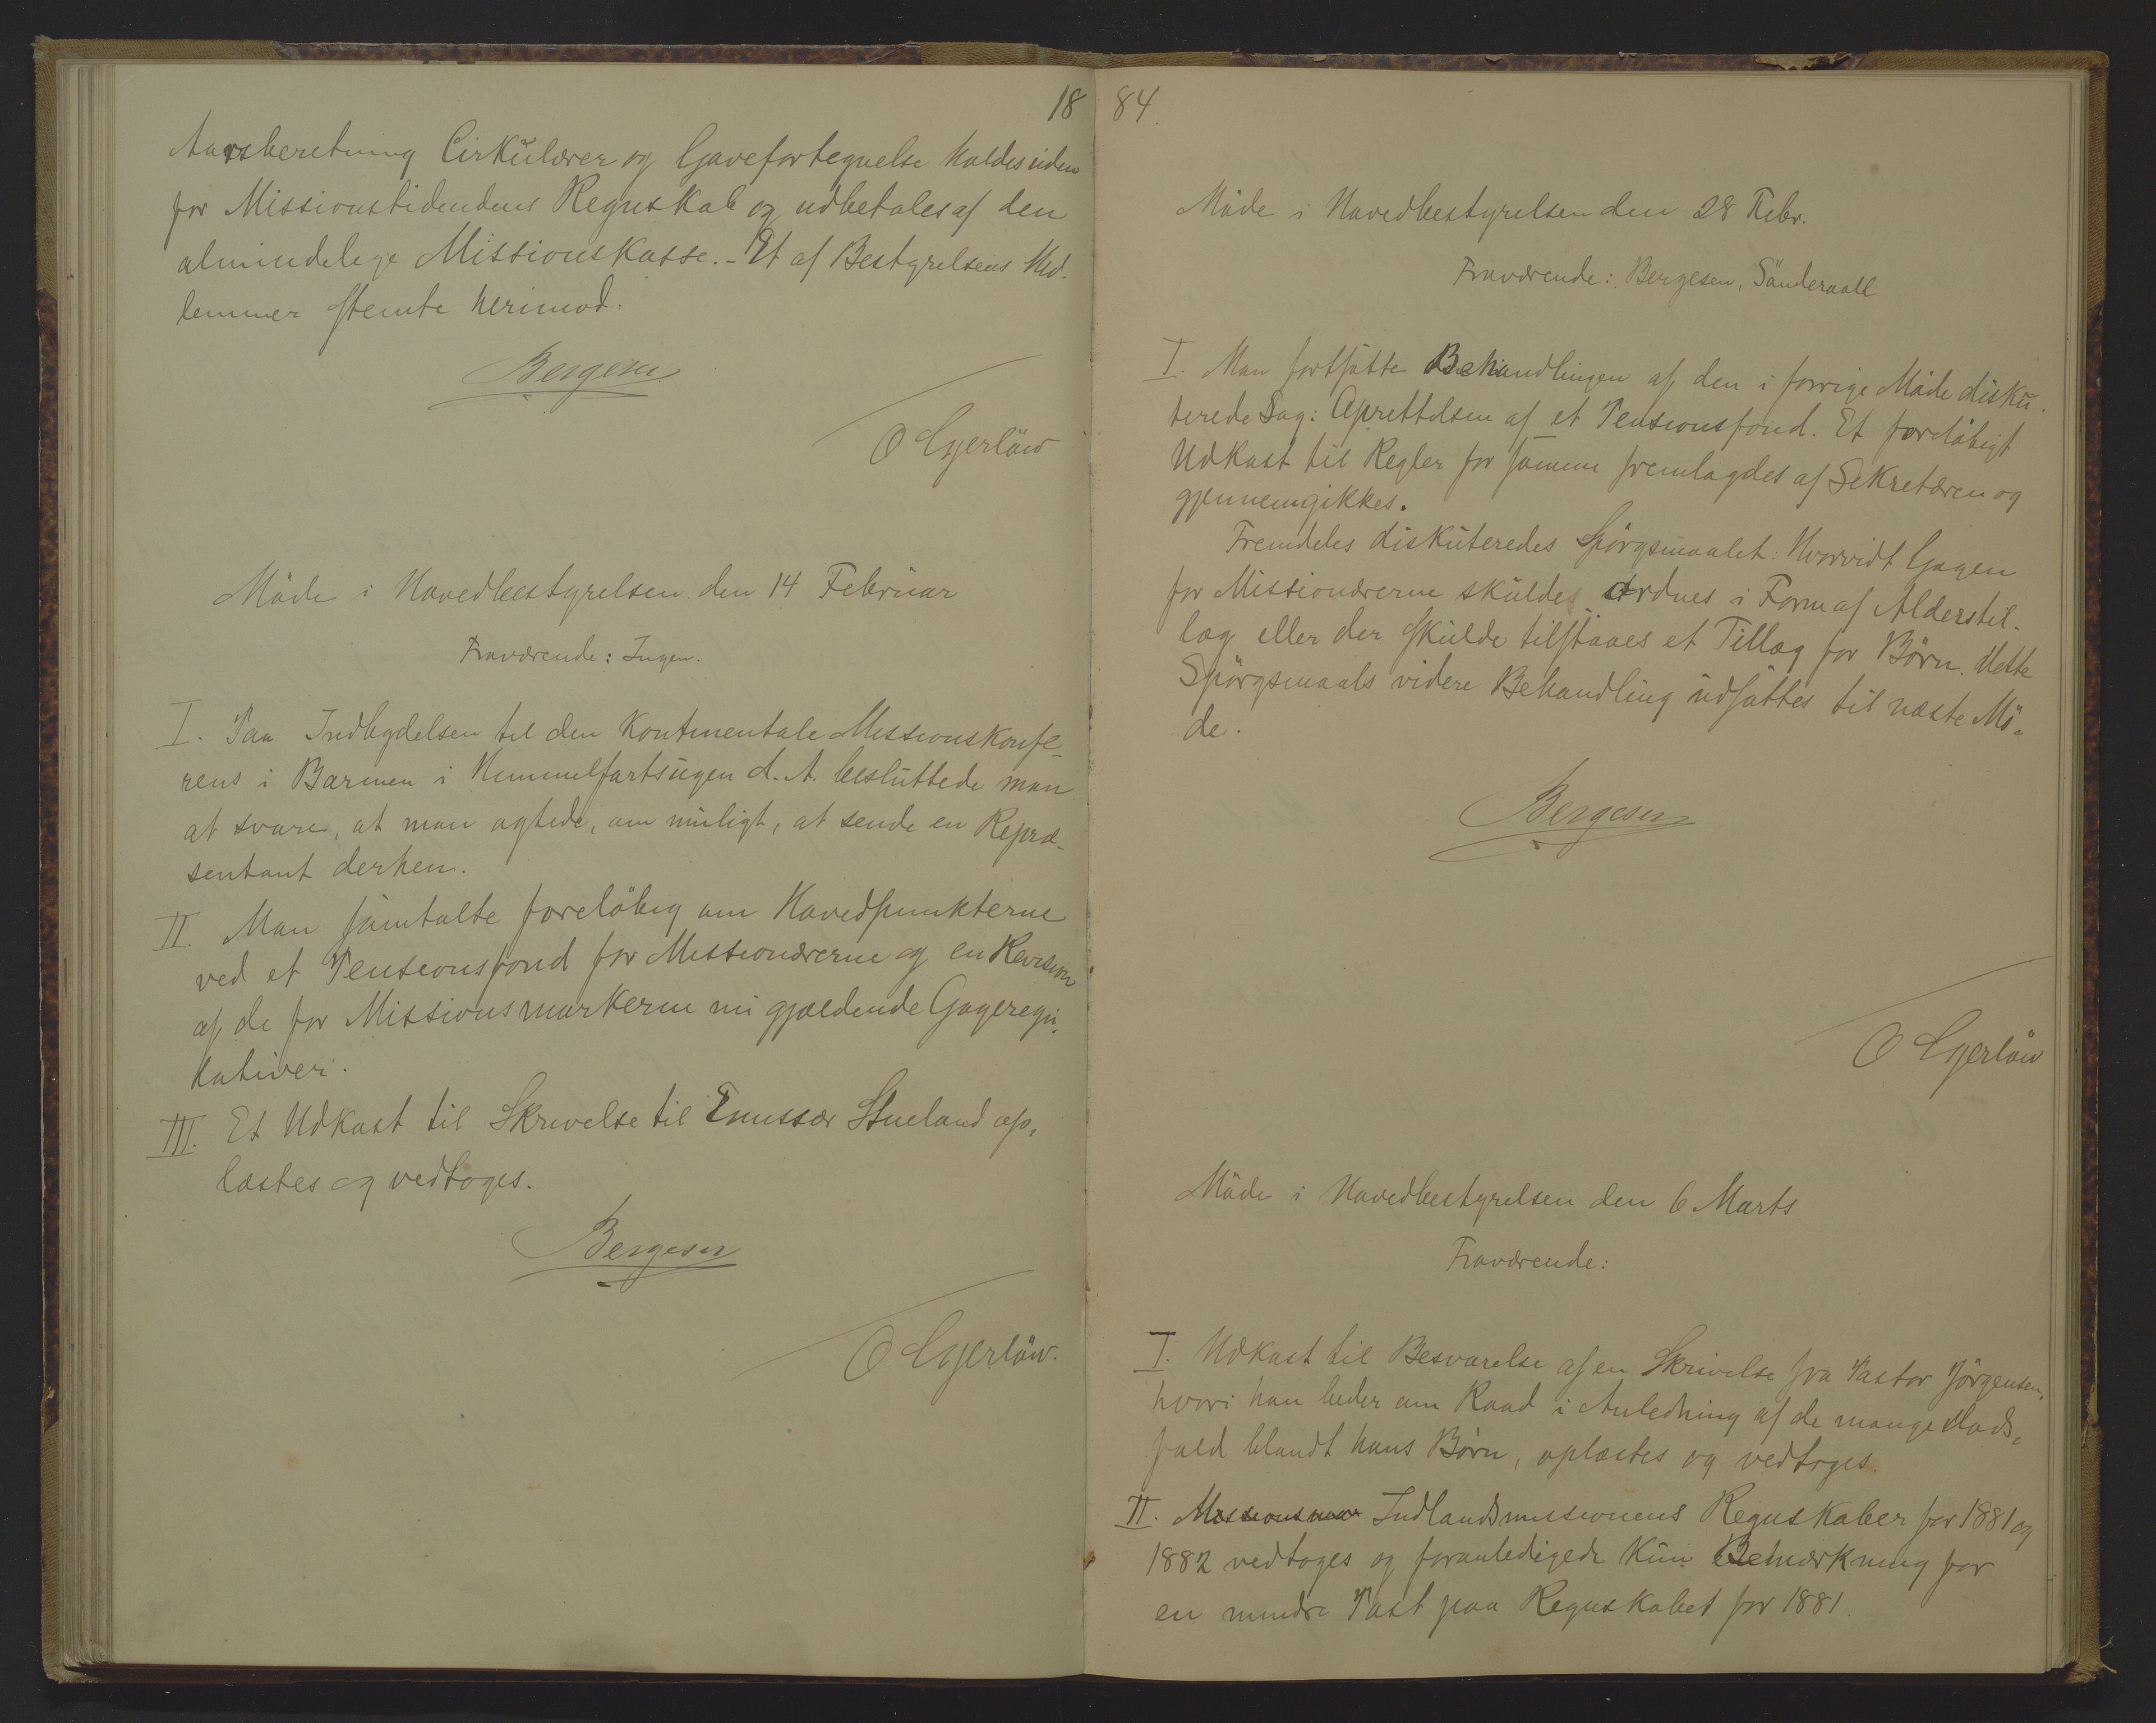 18
Aarsberetning Cirkulærer og Gavefortegnelse holdes uden
for Missionstidendens Regnskab og udbetales af den
almindelige Missionskasse. - Et af Bestyrelsens Med-
lemmer stemte herimod.
Bergesen
O Gjerløw
Møde i Hovedbestyrelsen den 14 Februar
Fraværende: Ingen.
I. Paa Indbydelsen til den Kontinentale Missionskonfe-
rens i Barmen i Himmelfartsugen d. A. besluttede man
at svare, at man agtede, om muligt, at sende en Repræ-
sentant derhen.
II. Man samtalte foreløbig om Hovedpunkterne
ved et Pensionsfond for Missionærerne og en Revision
af de for Missionsmarkerne nu gjældende Gageregu-
lativer.
III. Et Udkast til Skrivelse til Emissær Stueland op-
læstes og vedtoges.
Bergesen
O Gjerløw.
84.
Møde i Hovedbestyrelsen den 28 Febr.
Fraværende: Bergesen, Sånderaall
I. Man fortsatte Behandlingen af den i forrige Møde disku-
terede Sag: Oprettelsen af et Pensionsfond. Et foreløbigt
Udkast til Regler for samme fremlagdes af Sekretæren og
gjennemgikkes.
Fremdeles diskuteredes Spörgsmaalet: Hvorvidt Gagen
for Missionærerne skuldes ordnes i Form af Alderstil-
læg eller der skulde tilstaaes et Tillæg for Børn. Dette
Spörgsmaals videre Behandling udsattes til næste Mö-
de.
Bergesen
O Gjerløw
Møde i Hovedbestyrelsen den 6 Marts
Fraværende:
I. Udkast til Besvarelse af en Skrivelse fra Pastor Jörgensen,
hvori han beder om Raad i Anledning af de mange Døds-
fald blandt hans Børn, oplæstes og vedtoges.
II. Missionsmar Indlandsmissionens Regnskaber for 1881 og
1882 vedtoges og foranledigede kun Bemærkning for
en mindre Post paa Regnskabet for 1881.